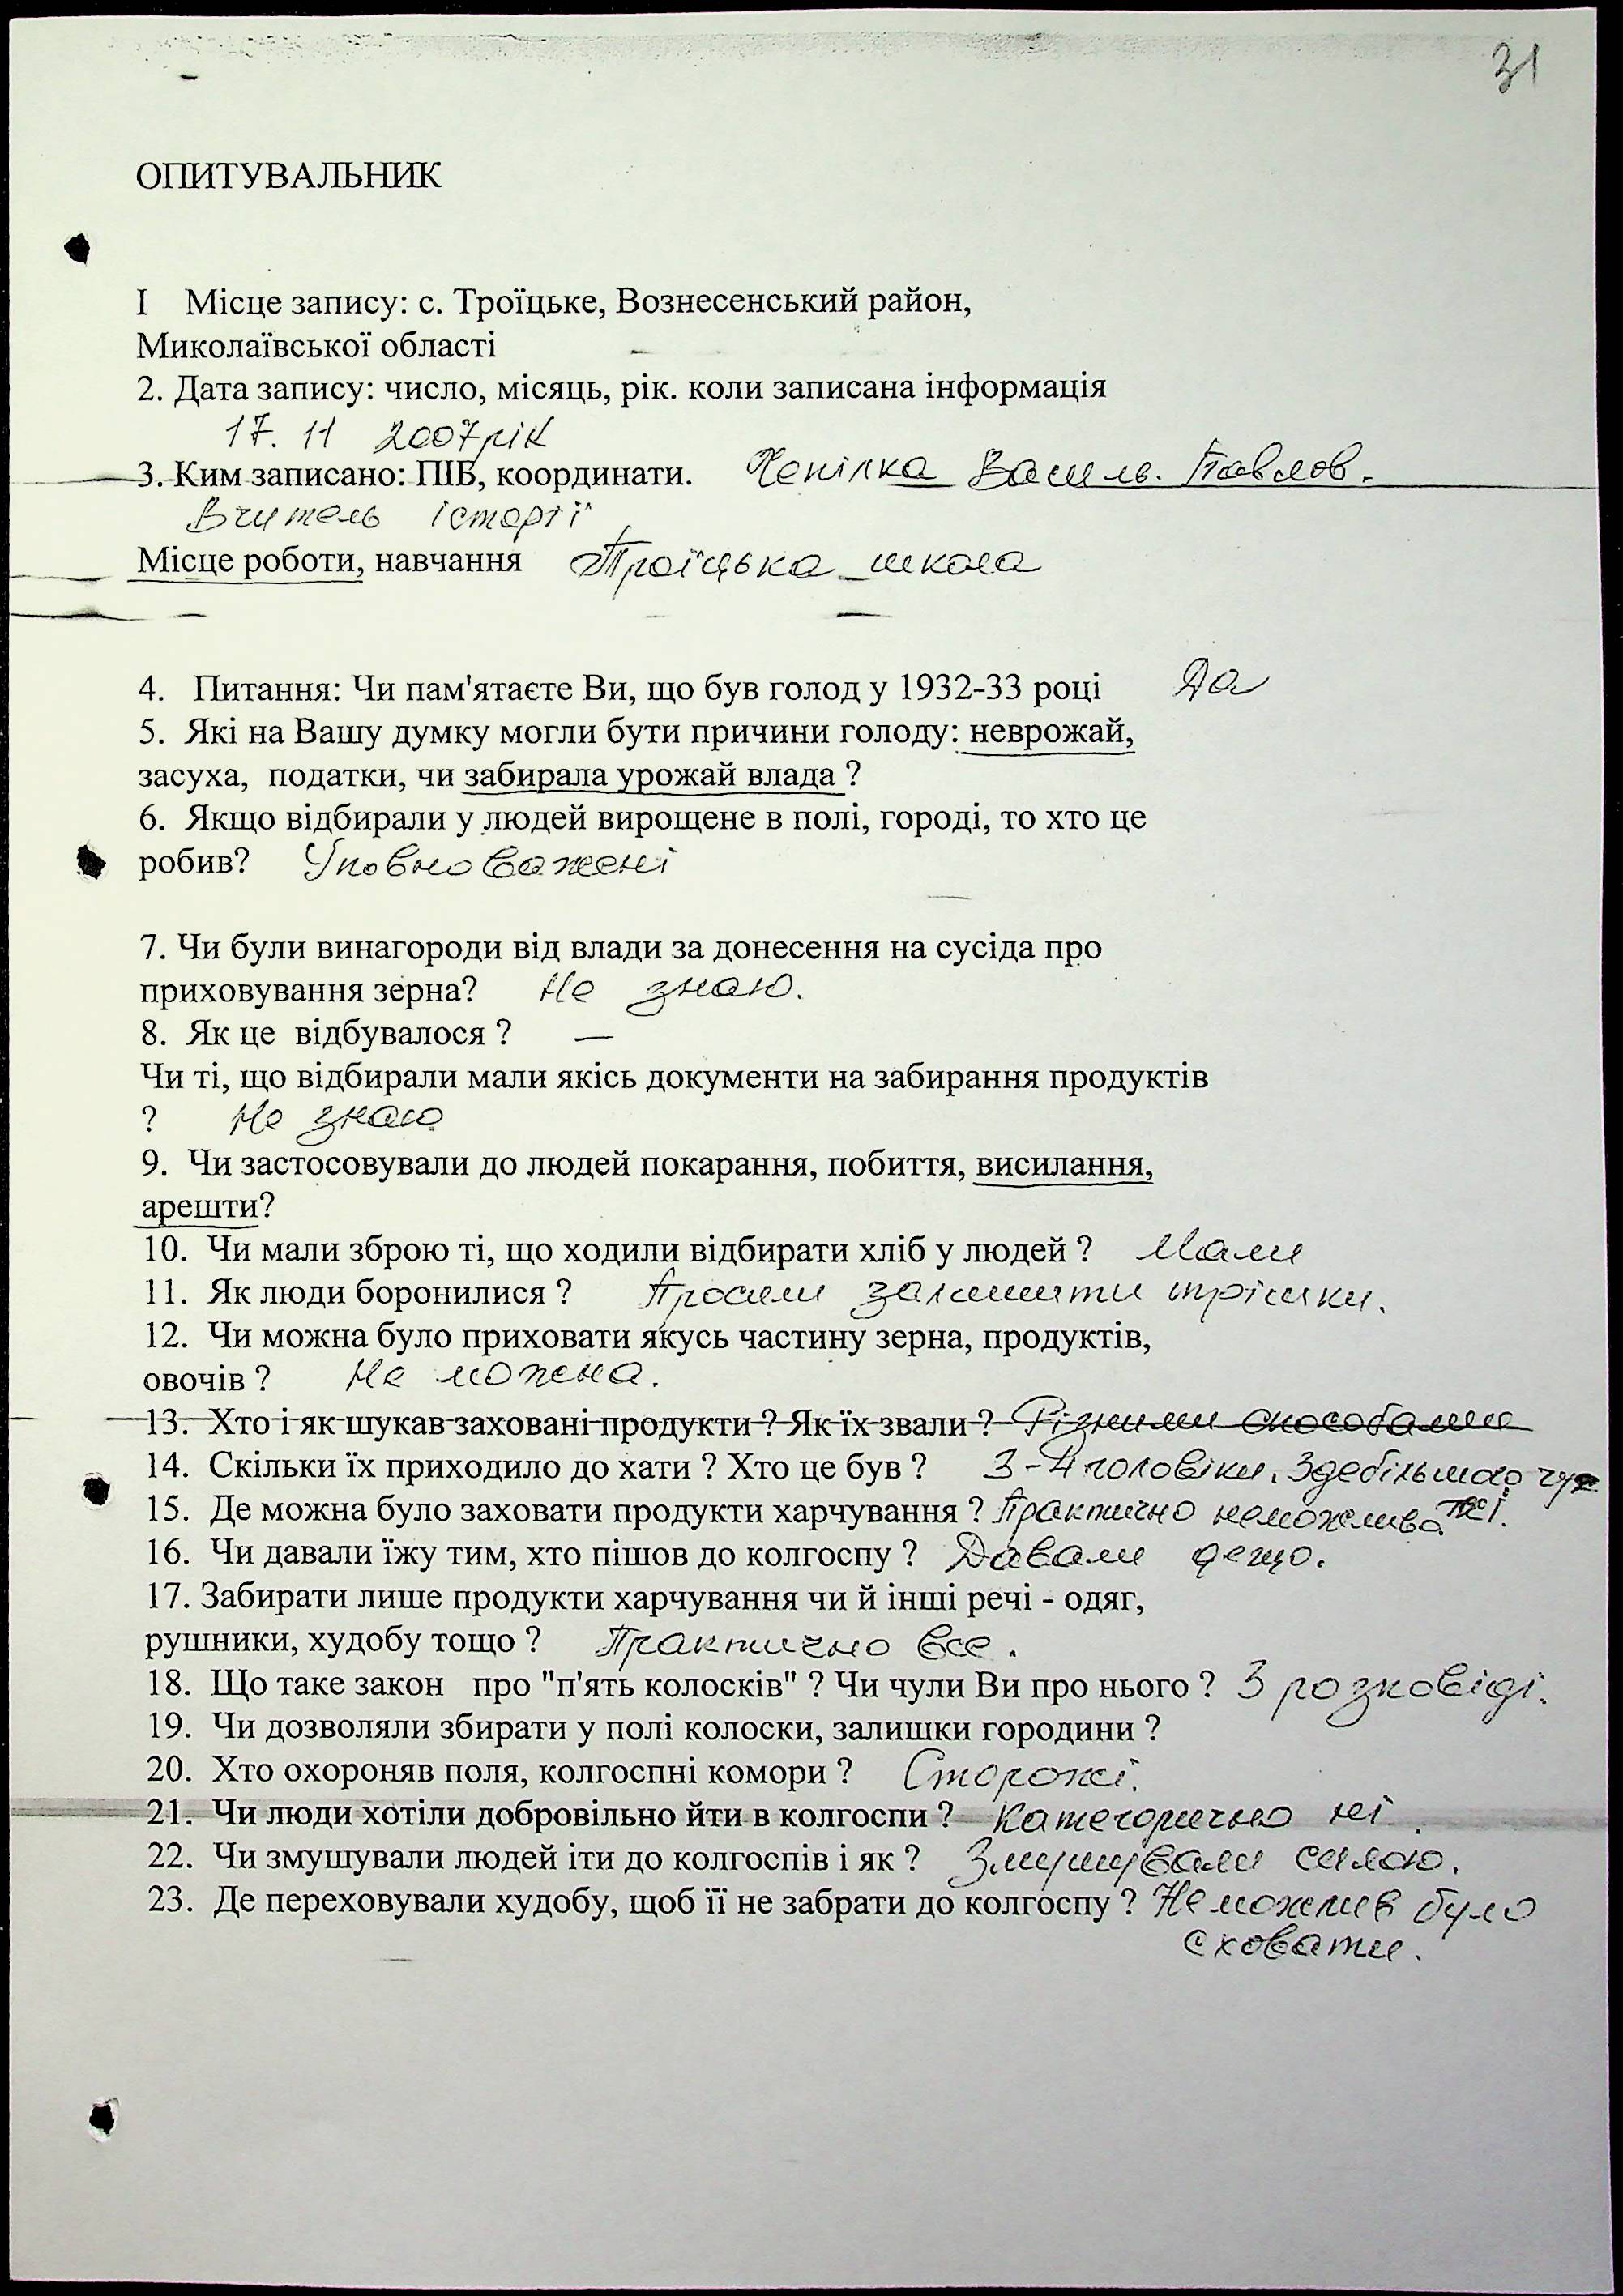 31
ОПИТУВАЛЬНИК
І Місце запису: с. Троїцьке, Вознесенський район,
Миколаївської області
2. Дата запису: число, місяць, рік. коли записана інформація
17. 11 2007 рік
3. Ким записано: ПІБ, координати. Чепілка Василь. Павлов.
Вчитель історії
Місце роботи, навчання Троїцька школа
4. Питання: Чи пам'ятаєте Ви, що був голод у 1932-33 році Да
5. Які на Вашу думку могли бути причини голоду: неврожай,
засуха, податки, чи забирала урожай влада ?
6. Якщо відбирали у людей вирощене в полі, городі, то хто це
робив? Уповноважені
7. Чи були винагороди від влади за донесення на сусіда про
приховування зерна? Не знаю.
8. Як це відбувалося ? —
Чи ті, що відбирали мали якісь документи на забирання продуктів
? Не знаю
9. Чи застосовували до людей покарання, побиття, висилання,
арешти?
10. Чи мали зброю ті, що ходили відбирати хліб у людей ? Мали
11. Як люди боронилися ? Просили залишити трішки.
12. Чи можна було приховати якусь частину зерна, продуктів,
овочів ? Не можна.
13. Хто і як шукав заховані продукти ? Як їх звали ? Різними способами
14. Скільки їх приходило до хати ? Хто це був ? 3-4 чоловіки. Здебільшого чуж
15. Де можна було заховати продукти харчування ? Практично неможливо. жі.
16. Чи давали їжу тим, хто пішов до колгоспу ? Давали дещо.
17. Забирати лише продукти харчування чи й інші речі - одяг,
рушники, худобу тощо ? Практично все.
18. Що таке закон про "п'ять колосків" ? Чи чули Ви про нього ? З розповіді.
19. Чи дозволяли збирати у полі колоски, залишки городини ?
20. Хто охороняв поля, колгоспні комори ? Сторожі.
21. Чи люди хотіли добровільно йти в колгоспи ? Категорично ні.
22. Чи змушували людей іти до колгоспів і як ? Змушували силою.
23. Де переховували худобу, щоб її не забрати до колгоспу ? Неможлив було
сховати.